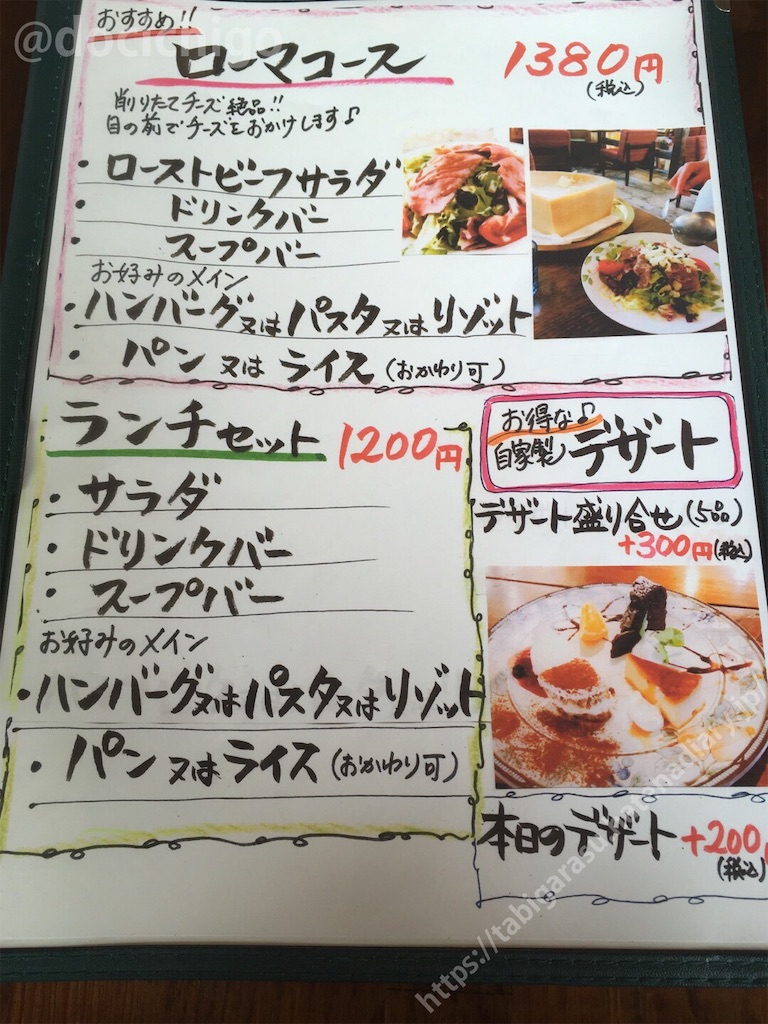 @docichigo
おすすめ!!
ローマコース 1380円
(税込)
削りたてチーズ絶品!!
目の前でチーズをおかけします♪
・ローストビーフサラダ
・ドリンクバー
・スープバー
お好みのメイン
・ハンバーグ又はパスタ又はリゾット
・パン又はライス(おかわり可)
ランチセット 1200円
・サラダ
・ドリンクバー
・スープバー
お好みのメイン
・ハンバーグ又はパスタ又はリゾット
・パン又はライス(おかわり可)
お得な♪
自家製デザート
デザート盛り合せ(5品)
+300円(税込)
本日のデザート +200円
(税込)
https://tabigarasu-otenadiary.jp/